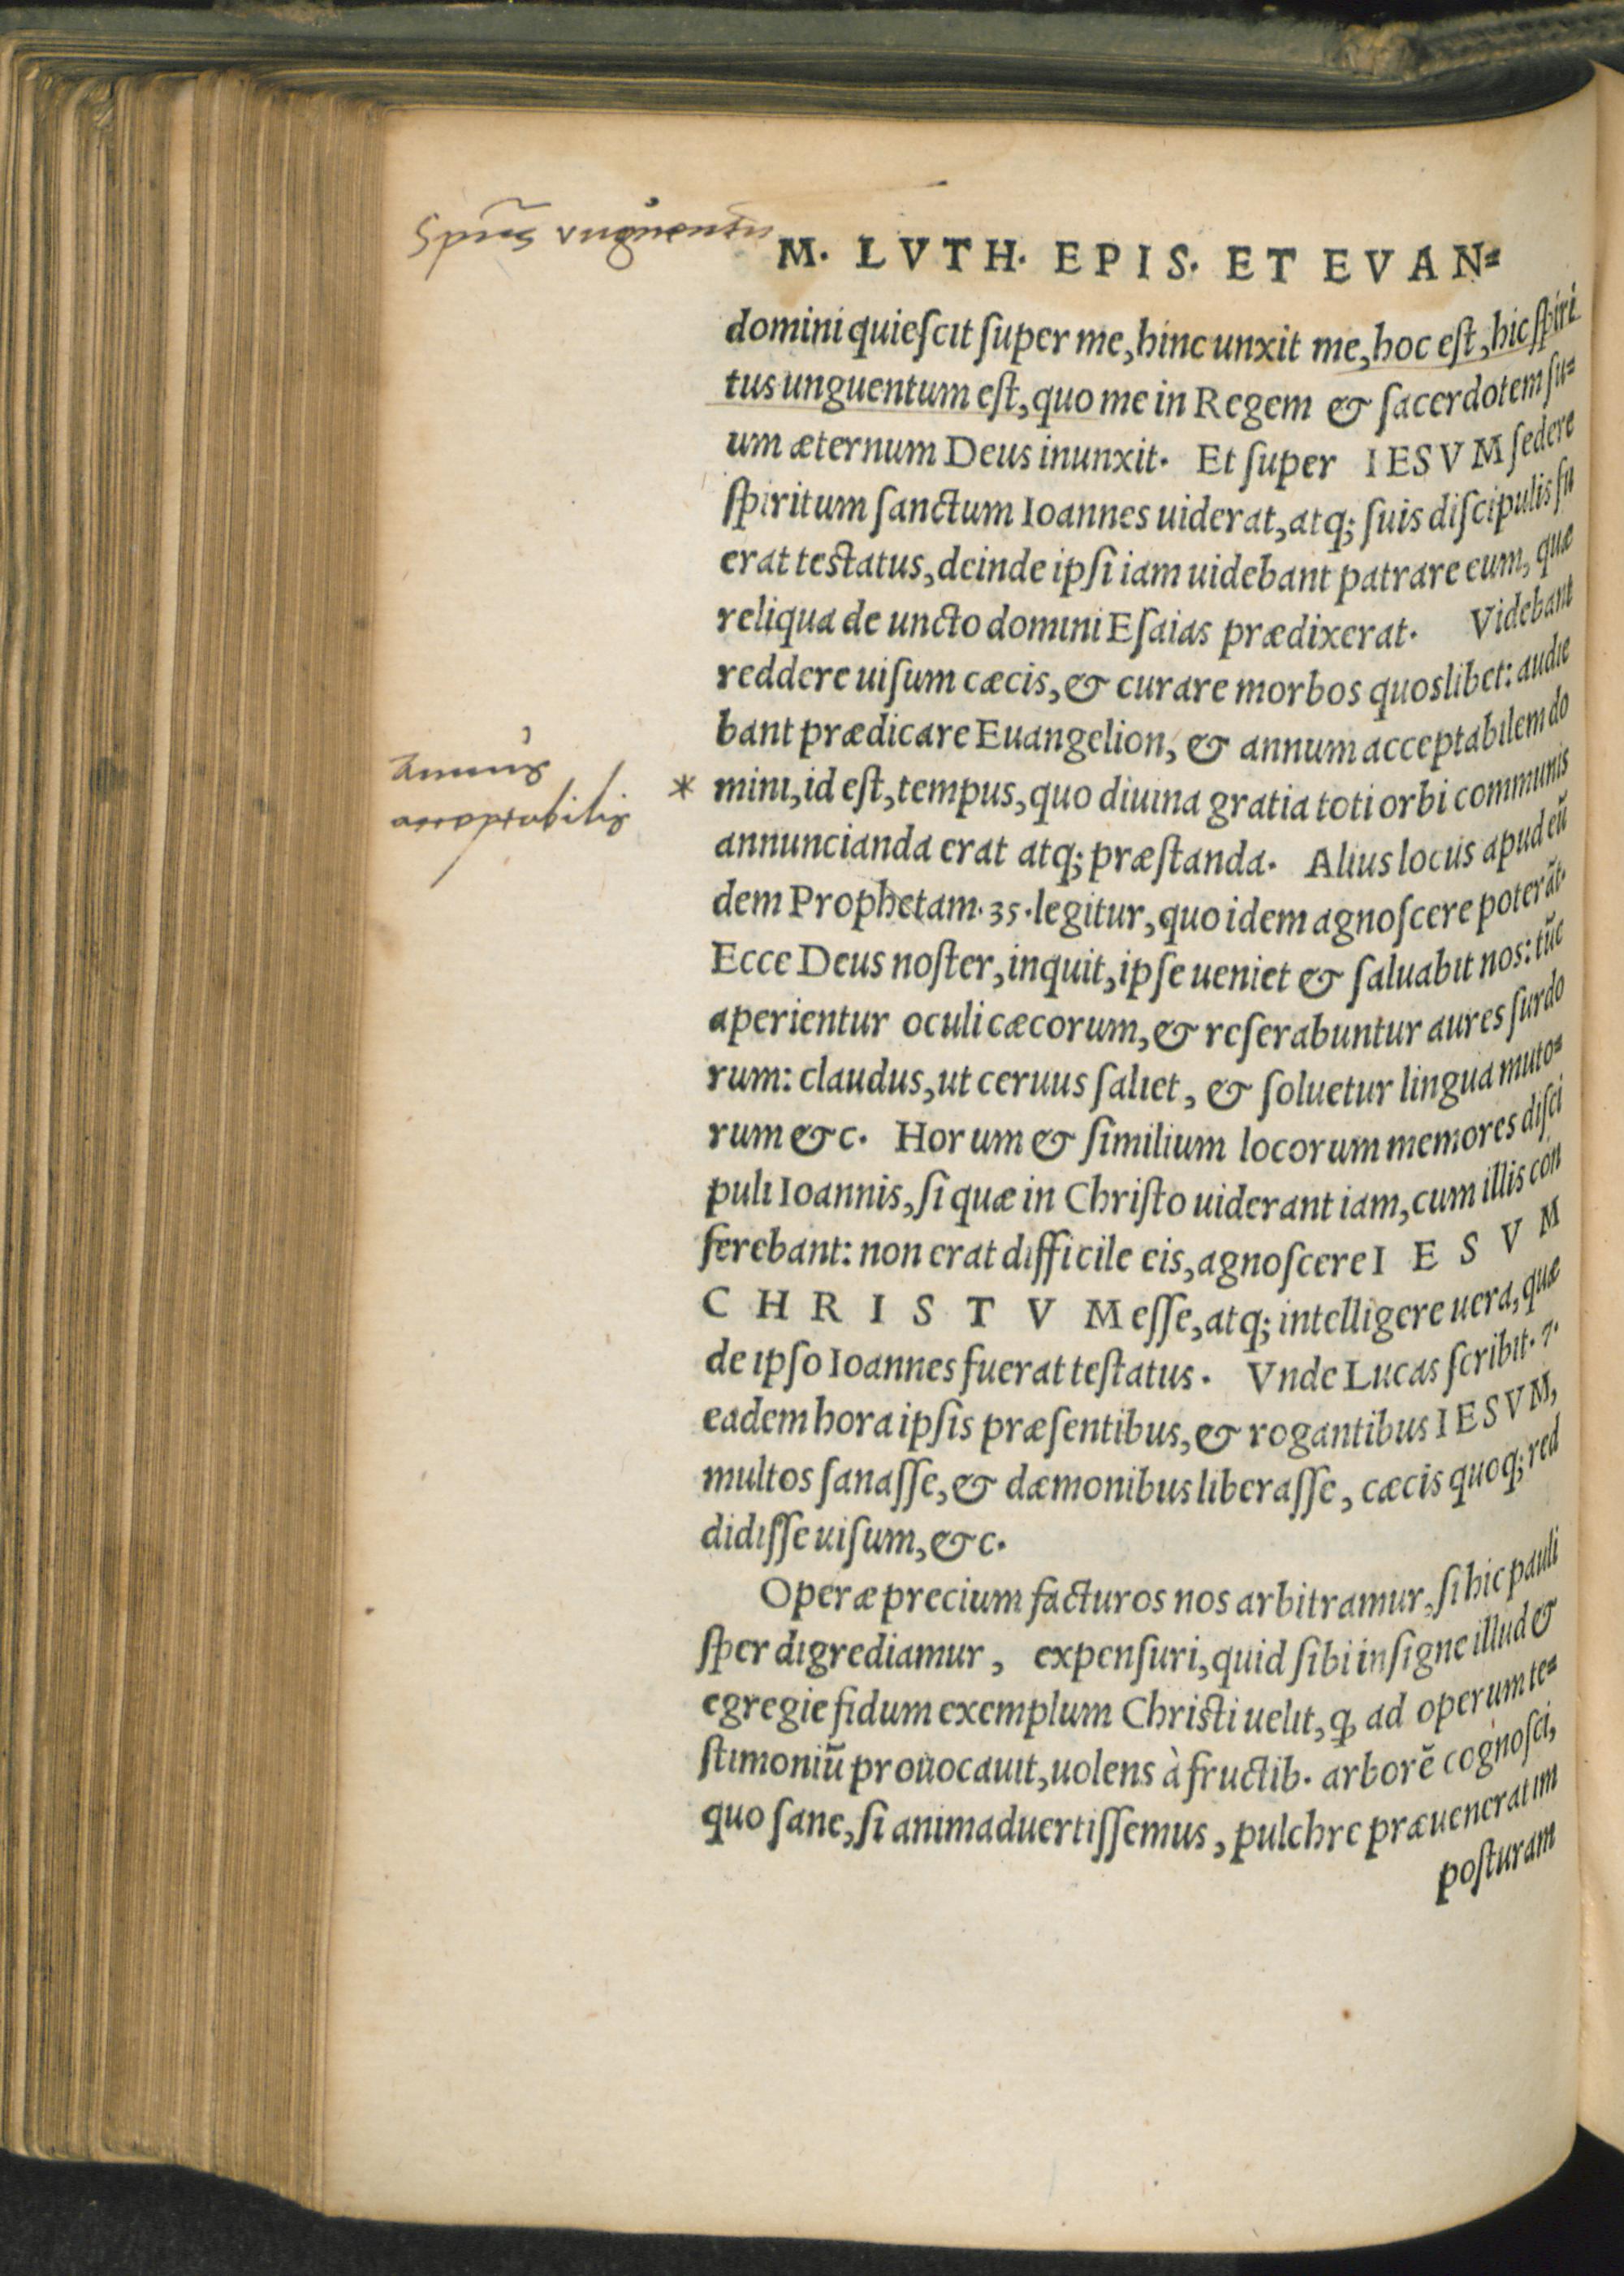 M. LVTH. EPIS. ET EVAN⸗
domini quieſcit ſuper me, hinc unxit me, hoc eſt, hic ſpiri
tus unguentum eſt, quo me in Regem & ſacerdotem ſu⸗
um æternum Deus inunxit. Et ſuper IESVM ſedere
ſpiritum ſanctum Ioannes uiderat, atq; ſuis diſcipulis fu
erat teſtatus, deinde ipſi iam uidebant patrare eum, quæ
reliqua de uncto domini Eſaias prædixerat. Videbant
reddere uiſum cæcis, & curare morbos quoslibet: audie
bant prædicare Euangelion, & annum acceptabilem do
* mini, id eſt, tempus, quo diuina gratia toti orbi communis
annuncianda erat atq; præſtanda. Alius locus apud eũ
dem Prophetam. 35. legitur, quo idem agnoſcere poterãt.
Ecce Deus noſter, inquit, ipſe ueniet & ſaluabit nos: tũc
aperientur oculi cæcorum, & reſerabuntur aures ſurdo
rum: claudus, ut ceruus ſaliet, & ſoluetur lingua muto⸗
rum &c. Horum & ſimilium locorum memores diſci
puli Ioannis, ſi quæ in Chriſto uiderant iam, cum illis con
ferebant: non erat difficile eis, agnoſcere I E S V M
C H R I S T V M eſſe, atq; intelligere uera, quæ
de ipſo Ioannes fuerat teſtatus. Vnde Lucas ſcribit. 7.
eadem hora ipſis præſentibus, & rogantibus IESVM,
multos ſanaſſe, & dæmonibus liberaſſe, cæcis quoq; red
didiſſe uiſum, &c.
Operæprecium facturos nos arbitramur, ſi hic pauli
ſper digrediamur, expenſuri, quid ſibi inſigne illud &
egregie fidum exemplum Chriſti uelit, ꝙ ad operum te⸗
ſtimoniũ prouocauit, uolens à fructib. arborẽ cognoſci,
quo ſane, ſi animaduertiſſemus, pulchre præuenerat im
poſturam